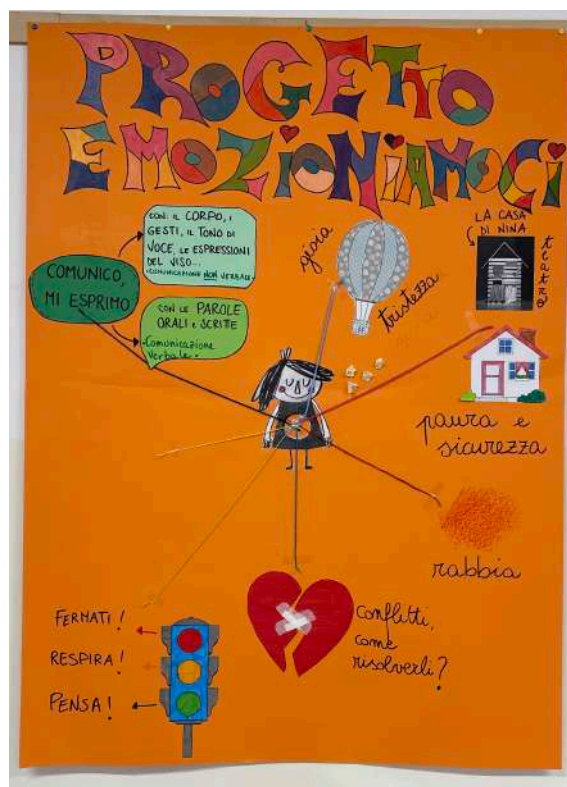 PROGETTO
EMOZIONIAMOCI
CON: IL CORPO, I
GESTI, IL TONO DI
VOCE, LE ESPRESSIONI
DEL VISO...
-COMUNICAZIONE NON VERBALE-
COMUNICO,
MI ESPRIMO
CON LE PAROLE
ORALI e SCRITTE
-Comunicazione
verbale-
gioia
tristezza
LA CASA
DI NINA
teatro
paura e
sicurezza
rabbia
conflitti,
come
risolverli?
FERMATI!
RESPIRA!
PENSA!